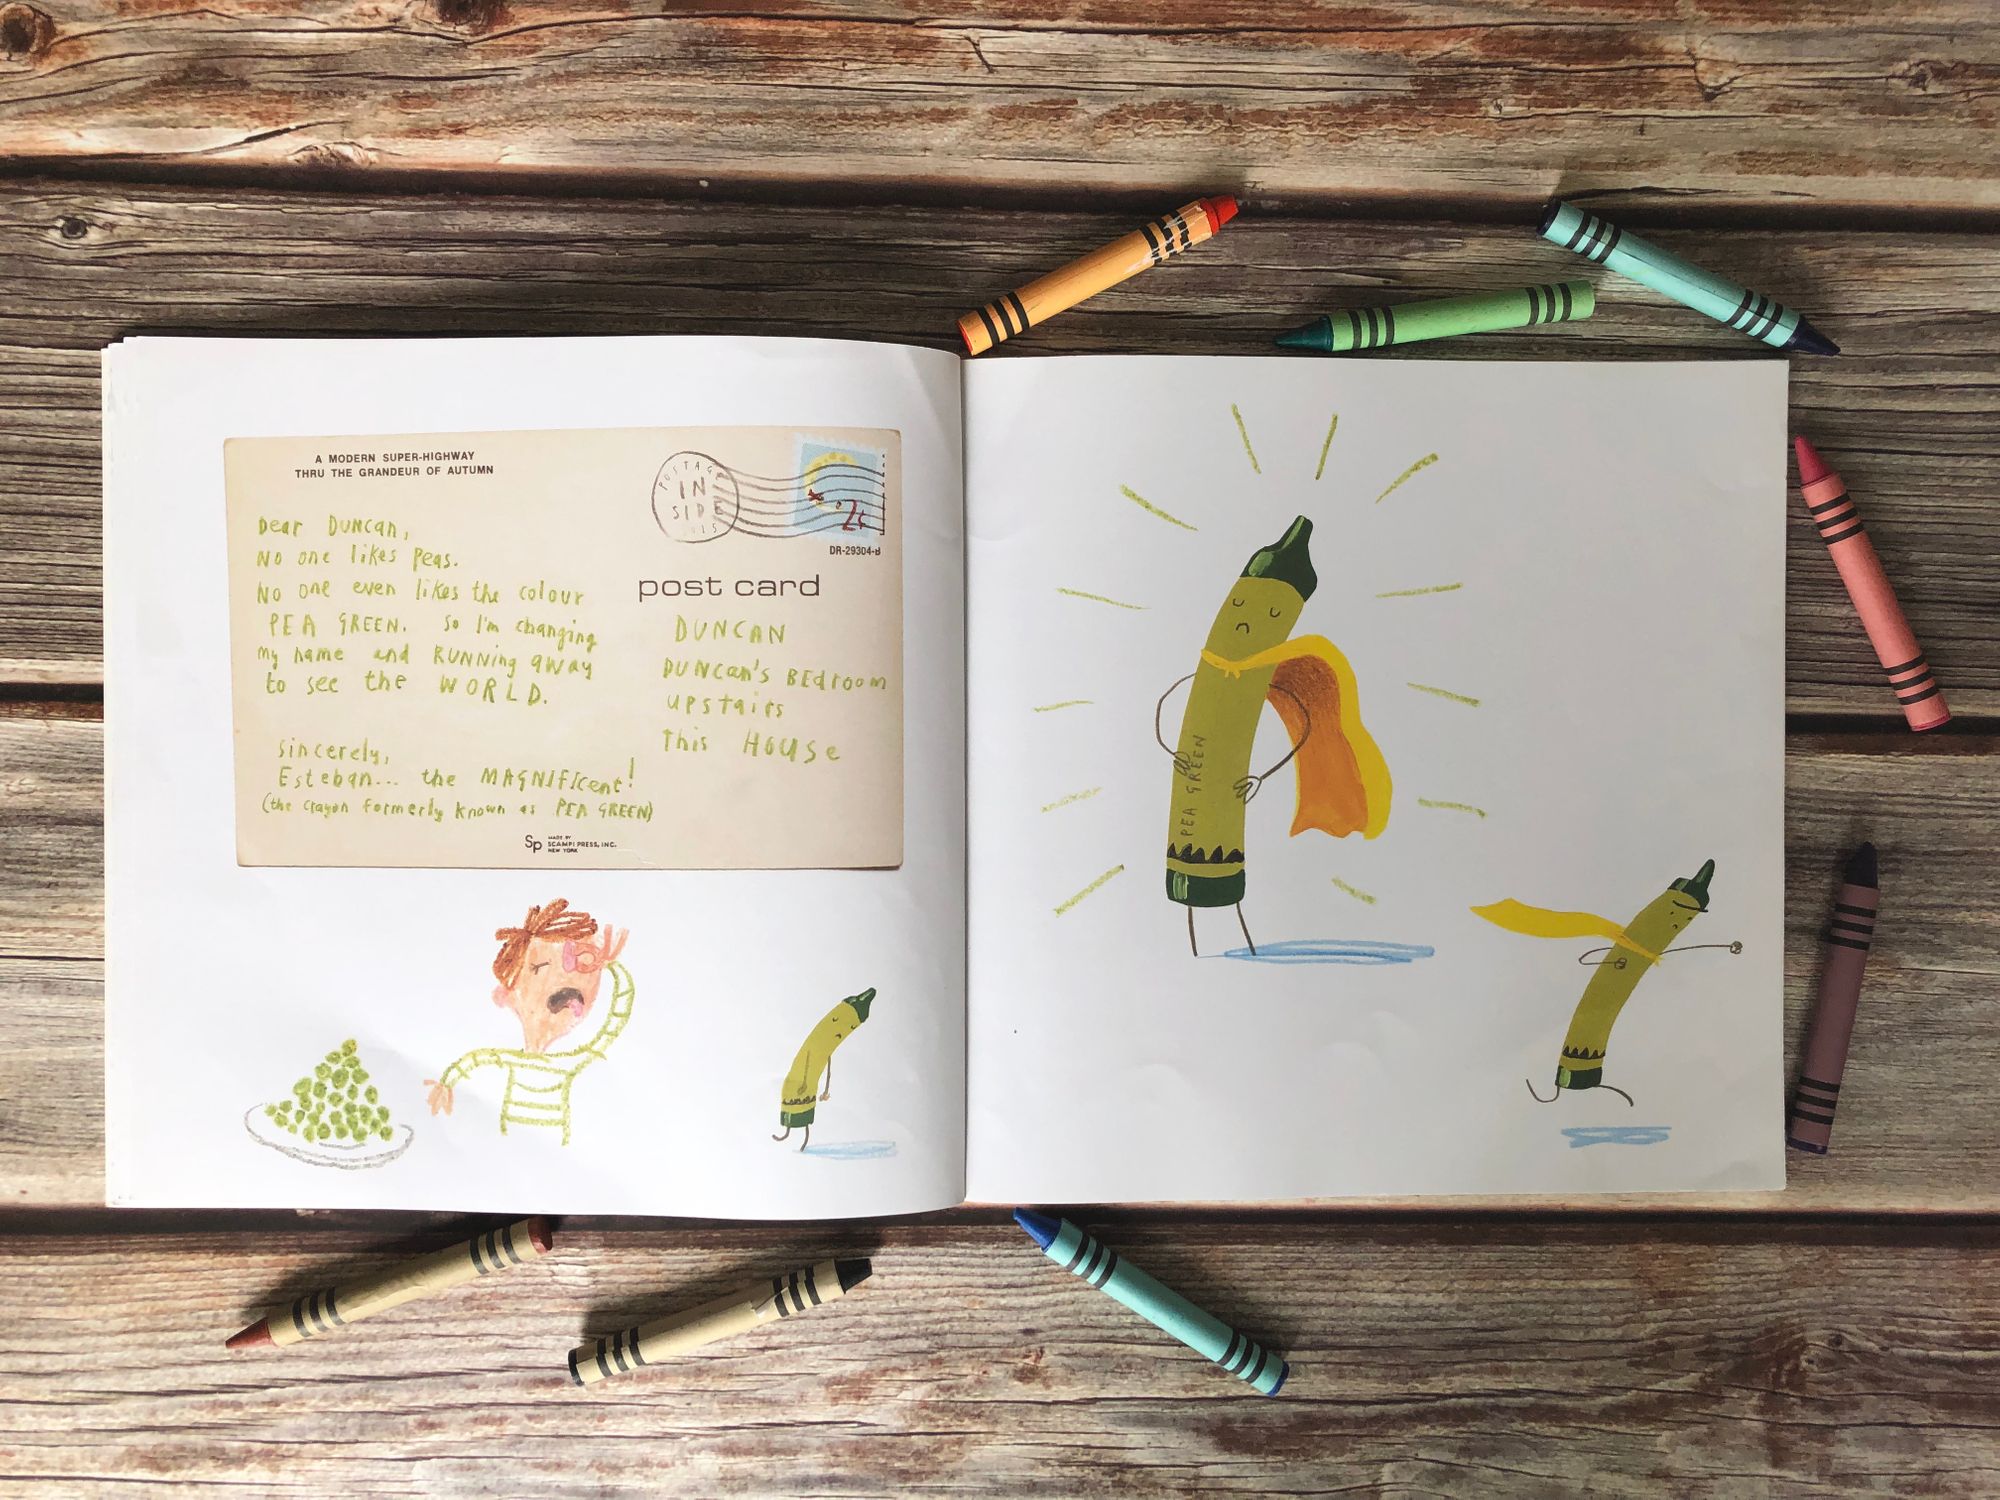 A MODERN SUPER-HIGHWAY
THRU THE GRANDEUR OF AUTUMN
Dear DUNCAN,
No one likes Peas.
No one even likes the colour
PEA GREEN. So I'm changing
my name and RUNNing away
to see the WORLD.
Sincerely,
Esteban... the MAGNIFICent!
(the crayon formerly known as PEA GREEN)
Sp MADE BY
SCAMPI PRESS, INC.
NEW YORK
POSTAGE
IN
SIDE
2¢
DR-29304-B
post card
DUNCAN
DUNCan's BEdroom
upstairs
This HOUSe
PEA GREEN